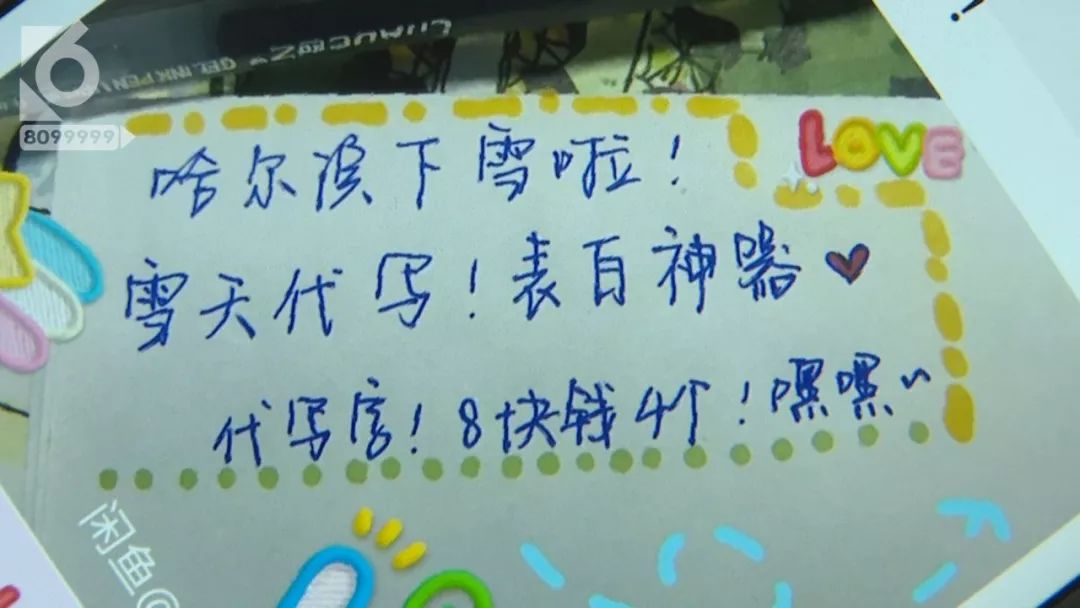 6
8099999
GEL INK PEN
LOVE
哈尔滨下雪啦！
雪天代写！表百神器
代写字！8块钱4个！嘿嘿~
闲鱼@